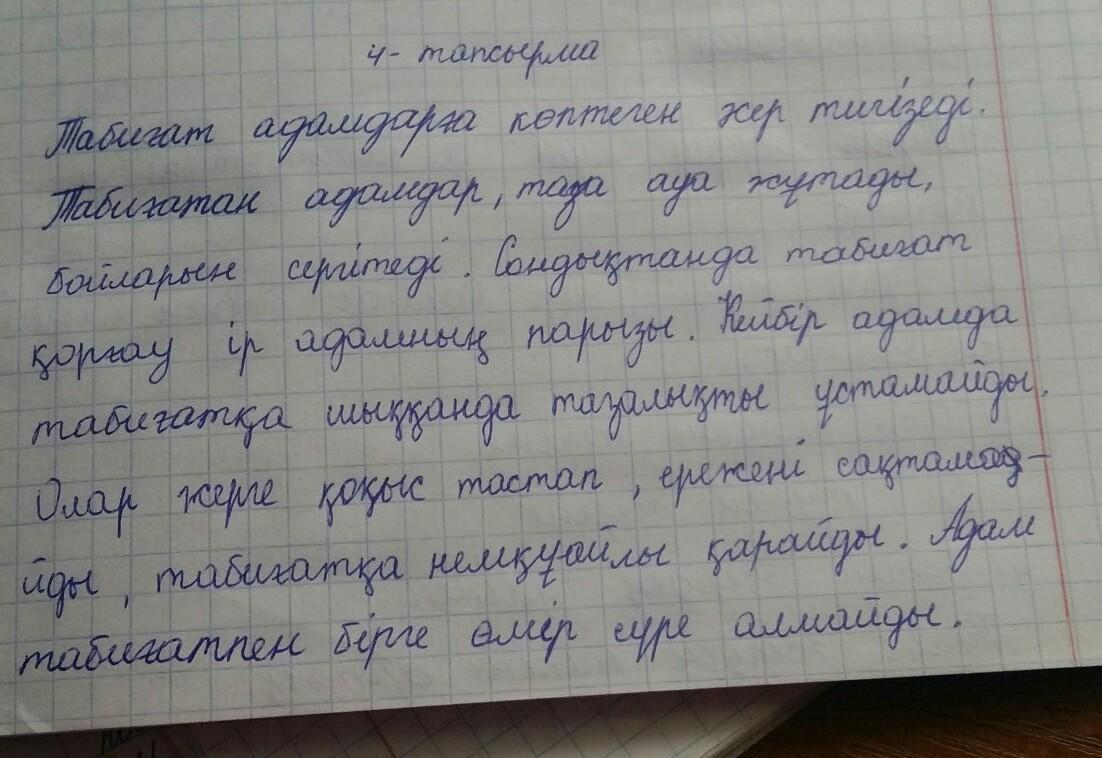 4- тапсырма
Табиғат адамдарға көптеген жер тигізеді.
Табиғатан адамдар, таза ауа жұтады,
бойларын сергітеді. Сондықтанда табиғат
қорғау ір адамның парызы. Кейбір адамда
табиғатқа шыққанда тазалықты ұстамайды.
Олар жерге қоқыс тастап, ережені сақтама-
йды, табиғатқа немқұайлы қарайды. Адам
табиғатпен бірге өмір сүре алмайды.